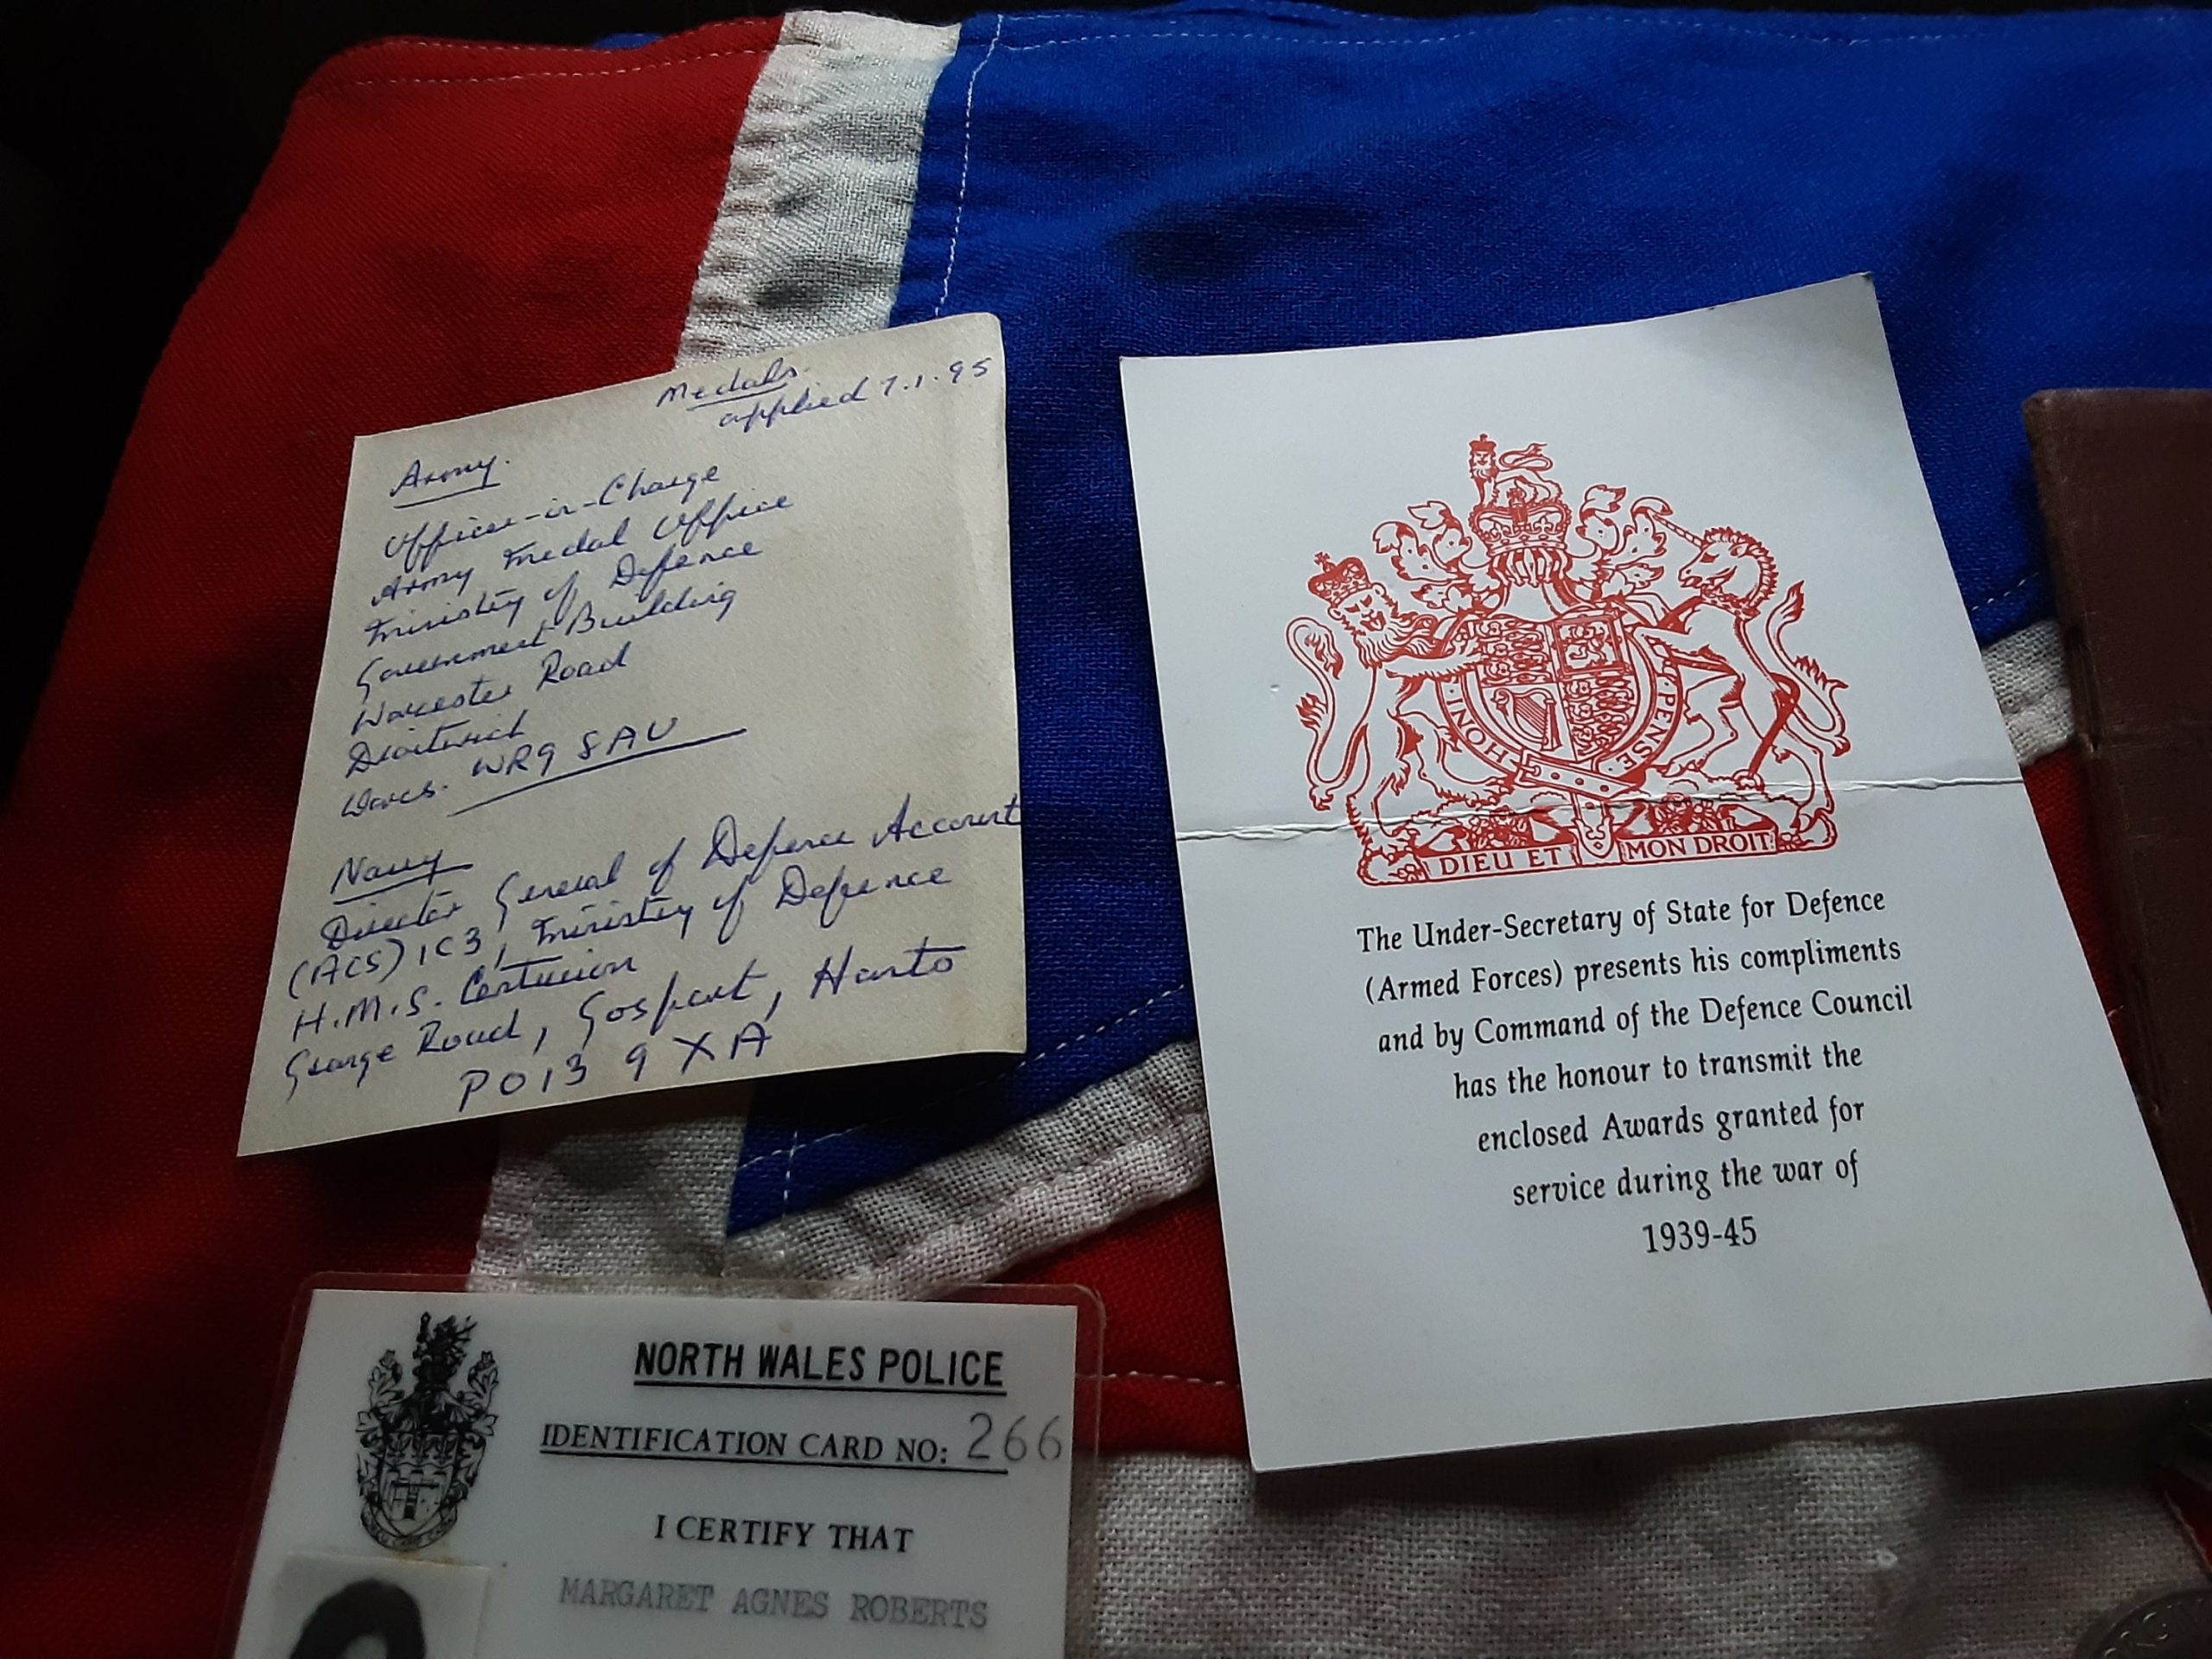 Medals.
applied 7.1.95
Army.
Officer-in-Charge
Army Medal Office
Ministry of Defence
Government Building
Worcester Road
Droitwich
Worcs. WR9 8AU
Navy
Director General of Defence Account
(ACS) 1C3, Ministry of Defence
H.M.S. Centurion
Grange Road, Gosport, Hants
PO13 9XA
HONI PENSE
DIEU ET MON DROIT
The Under-Secretary of State for Defence
(Armed Forces) presents his compliments
and by Command of the Defence Council
has the honour to transmit the
enclosed Awards granted for
service during the war of
1939-45
NORTH WALES POLICE
IDENTIFICATION CARD NO: 266
I CERTIFY THAT
MARGARET AGNES ROBERTS